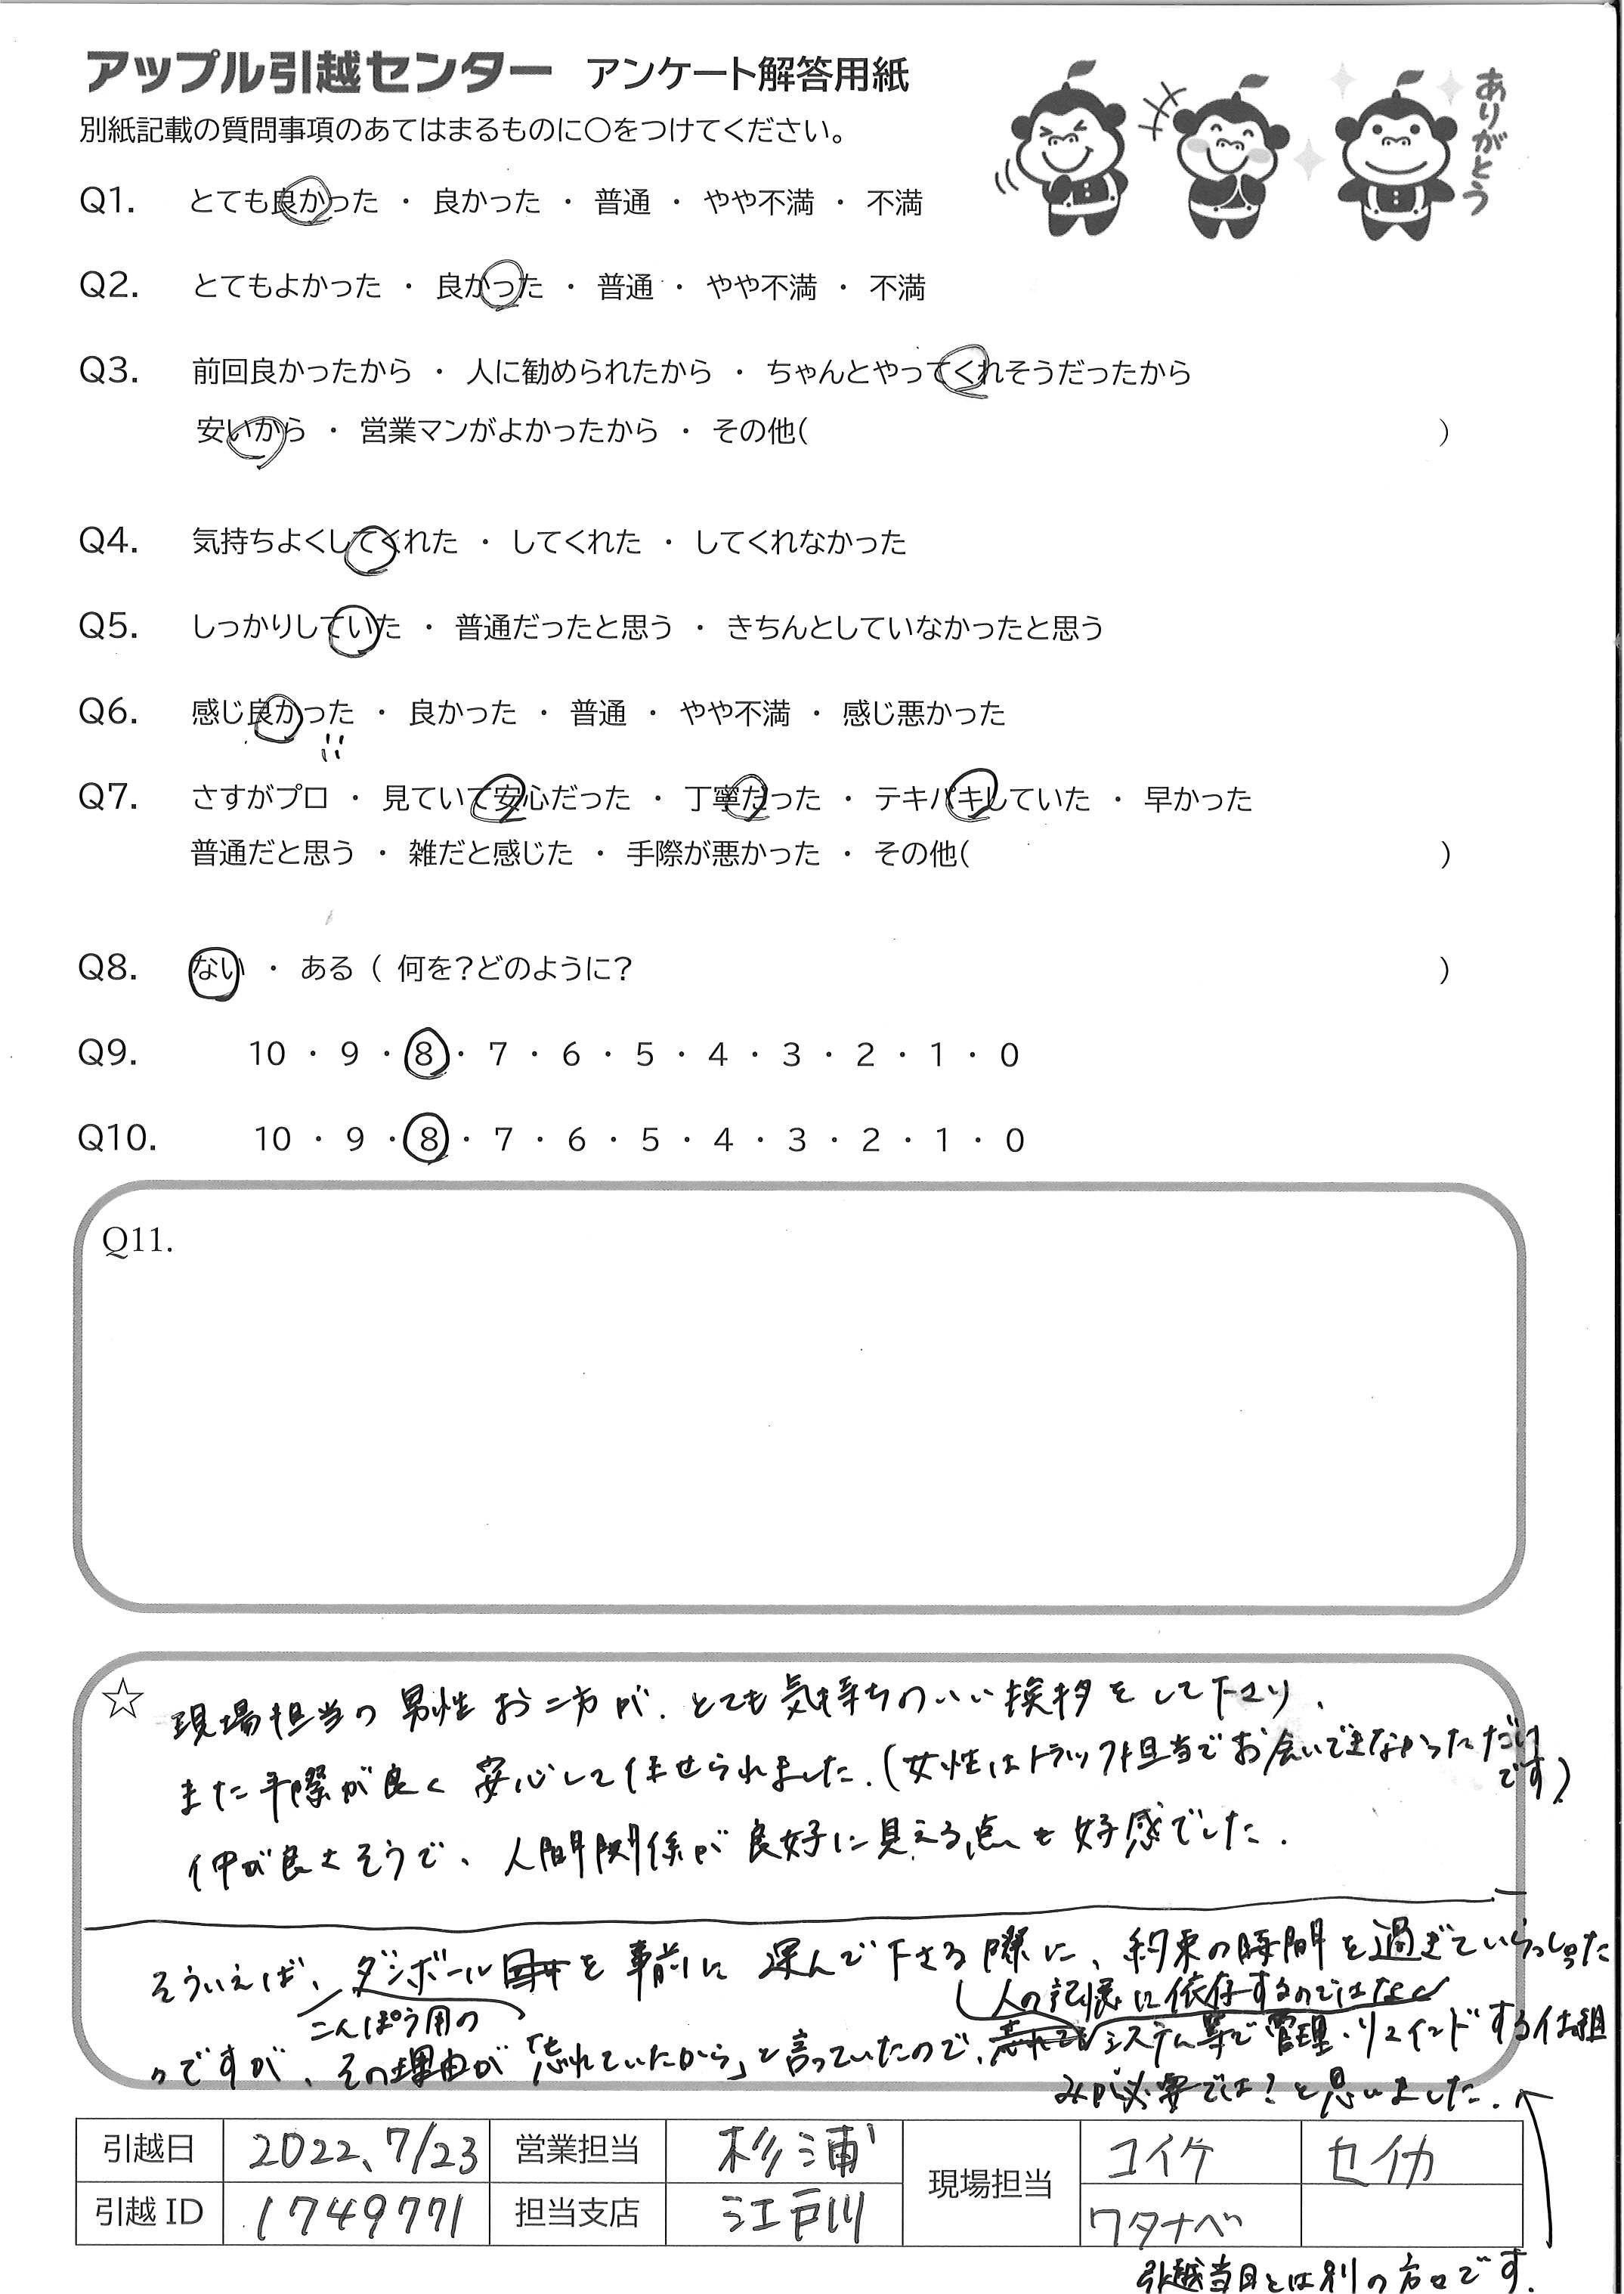 アップル引越センター アンケート解答用紙
ありがとう
別紙記載の質問事項のあてはまるものに○をつけてください。
Q1. とても良かった ・ 良かった ・ 普通 ・ やや不満 ・ 不満
Q2. とてもよかった ・ 良かった ・ 普通 ・ やや不満 ・ 不満
Q3. 前回良かったから ・ 人に勧められたから ・ ちゃんとやってくれそうだったから
安いから ・ 営業マンがよかったから ・ その他( )
Q4. 気持ちよくしてくれた ・ してくれた ・ してくれなかった
Q5. しっかりしていた ・ 普通だったと思う ・ きちんとしていなかったと思う
Q6. 感じ良かった ・ 良かった ・ 普通 ・ やや不満 ・ 感じ悪かった
!!
Q7. さすがプロ ・ 見ていて安心だった ・ 丁寧だった ・ テキパキしていた ・ 早かった
普通だと思う ・ 雑だと感じた ・ 手際が悪かった ・ その他( )
Q8. ない ・ ある ( 何を?どのように? )
Q9. 10 ・ 9 ・ 8 ・ 7 ・ 6 ・ 5 ・ 4 ・ 3 ・ 2 ・ 1 ・ 0
Q10. 10 ・ 9 ・ 8 ・ 7 ・ 6 ・ 5 ・ 4 ・ 3 ・ 2 ・ 1 ・ 0
Q11.
☆ 現場担当の男性お二方が、とても気持ちのいい挨拶をして下さり、
また手際が良く安心して任せられました。(女性はトラック担当でお会いできなかっただけ
です)
仲が良さそうで、人間関係が良好に見える点も好感でした。
そういえば、ダンボールを事前に運んで下さる際に、約束の時間を過ぎていらっしゃった
こんぽう用の
人の記憶に依存するのではなく
のですが、その理由が「忘れていたから」と言っていたので、システム等で管理・リマインドする仕組
みが必要では?と思いました。
引越日 2022、7/23 営業担当 杉浦 現場担当 コイケ セイカ
引越ID 1749771 担当支店 江戸川 ワタナベ
引越当日とは別の方々です。